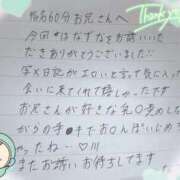 Thank you
指名60分お兄さんへ
今回はなずなをお誘いいた
だきありがとうございました!!
写メ日記がエロいと言って気に入って
会いに来てくれて嬉しかったです
お兄さんが好きな乳○責めしな
がらの手●キでお○んぽいじめち
ゃったね…♡///
またお誘いお待ちしてます